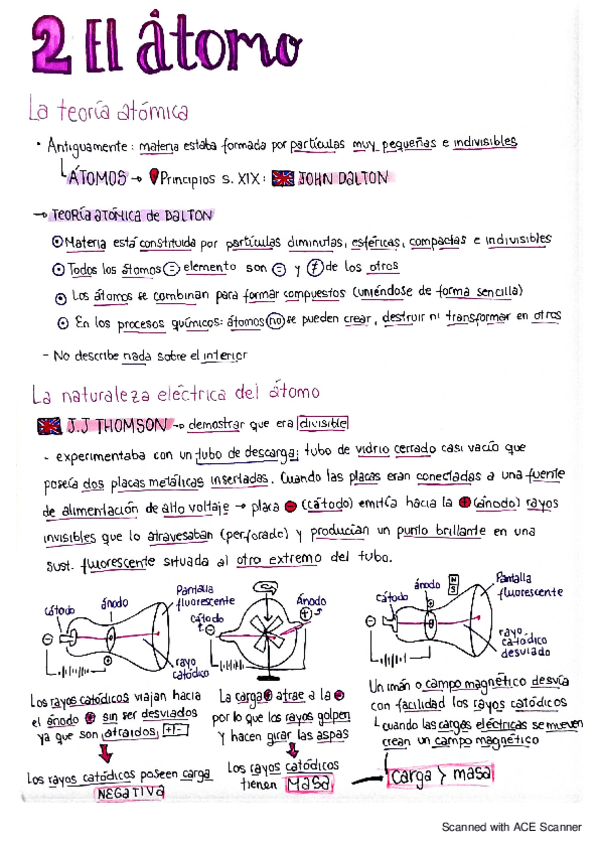 2 El átomo
La teoría atómica
• Antiguamente: materia estaba formada por partículas muy pequeñas e indivisibles
ÁTOMOS → Principios s. XIX: JOHN DALTON
→ TEORÍA ATÓMICA DE DALTON
Materia está constituida por partículas diminutas, esféricas, compactas e indivisibles
Todos los átomos = elemento son = y ≠ de los otros
Los átomos se combinan para formar compuestos (uniéndose de forma sencilla)
En los procesos químicos: átomos no se pueden crear, destruir ni transformar en otros
- No describe nada sobre el interior
La naturaleza eléctrica del átomo
J.J THOMSON → demostrar que era divisible
- experimentaba con un tubo de descarga; tubo de vidrio cerrado casi vacío que
poseía dos placas metálicas insertadas. Cuando las placas eran conectadas a una fuente
de alimentación de alto voltaje → placa - (cátodo) emitía hacia la + (ánodo) rayos
invisibles que lo atravesaban (perforado) y producían un punto brillante en una
sust. fluorescente situada al otro extremo del tubo.
cátodo
ánodo
Pantalla
fluorescente
rayo
catódico
cátodo
Ánodo
cátodo
ánodo
N
S
Pantalla
fluorescente
rayo
catódico
desviado
Los rayos catódicos viajan hacia
el ánodo + sin ser desviados
ya que son atraidos, +-
Los rayos catódicos poseen carga
NEGATIVA
La carga + atrae a la -
por lo que los rayos golpen
y hacen girar las aspas
Los rayos catódicos
tienen MASA
Un imán o campo magnético desvía
con facilidad los rayos catódicos
cuando las cargas eléctricas se mueven
crean un campo magnético
carga > masa
Scanned with ACE Scanner